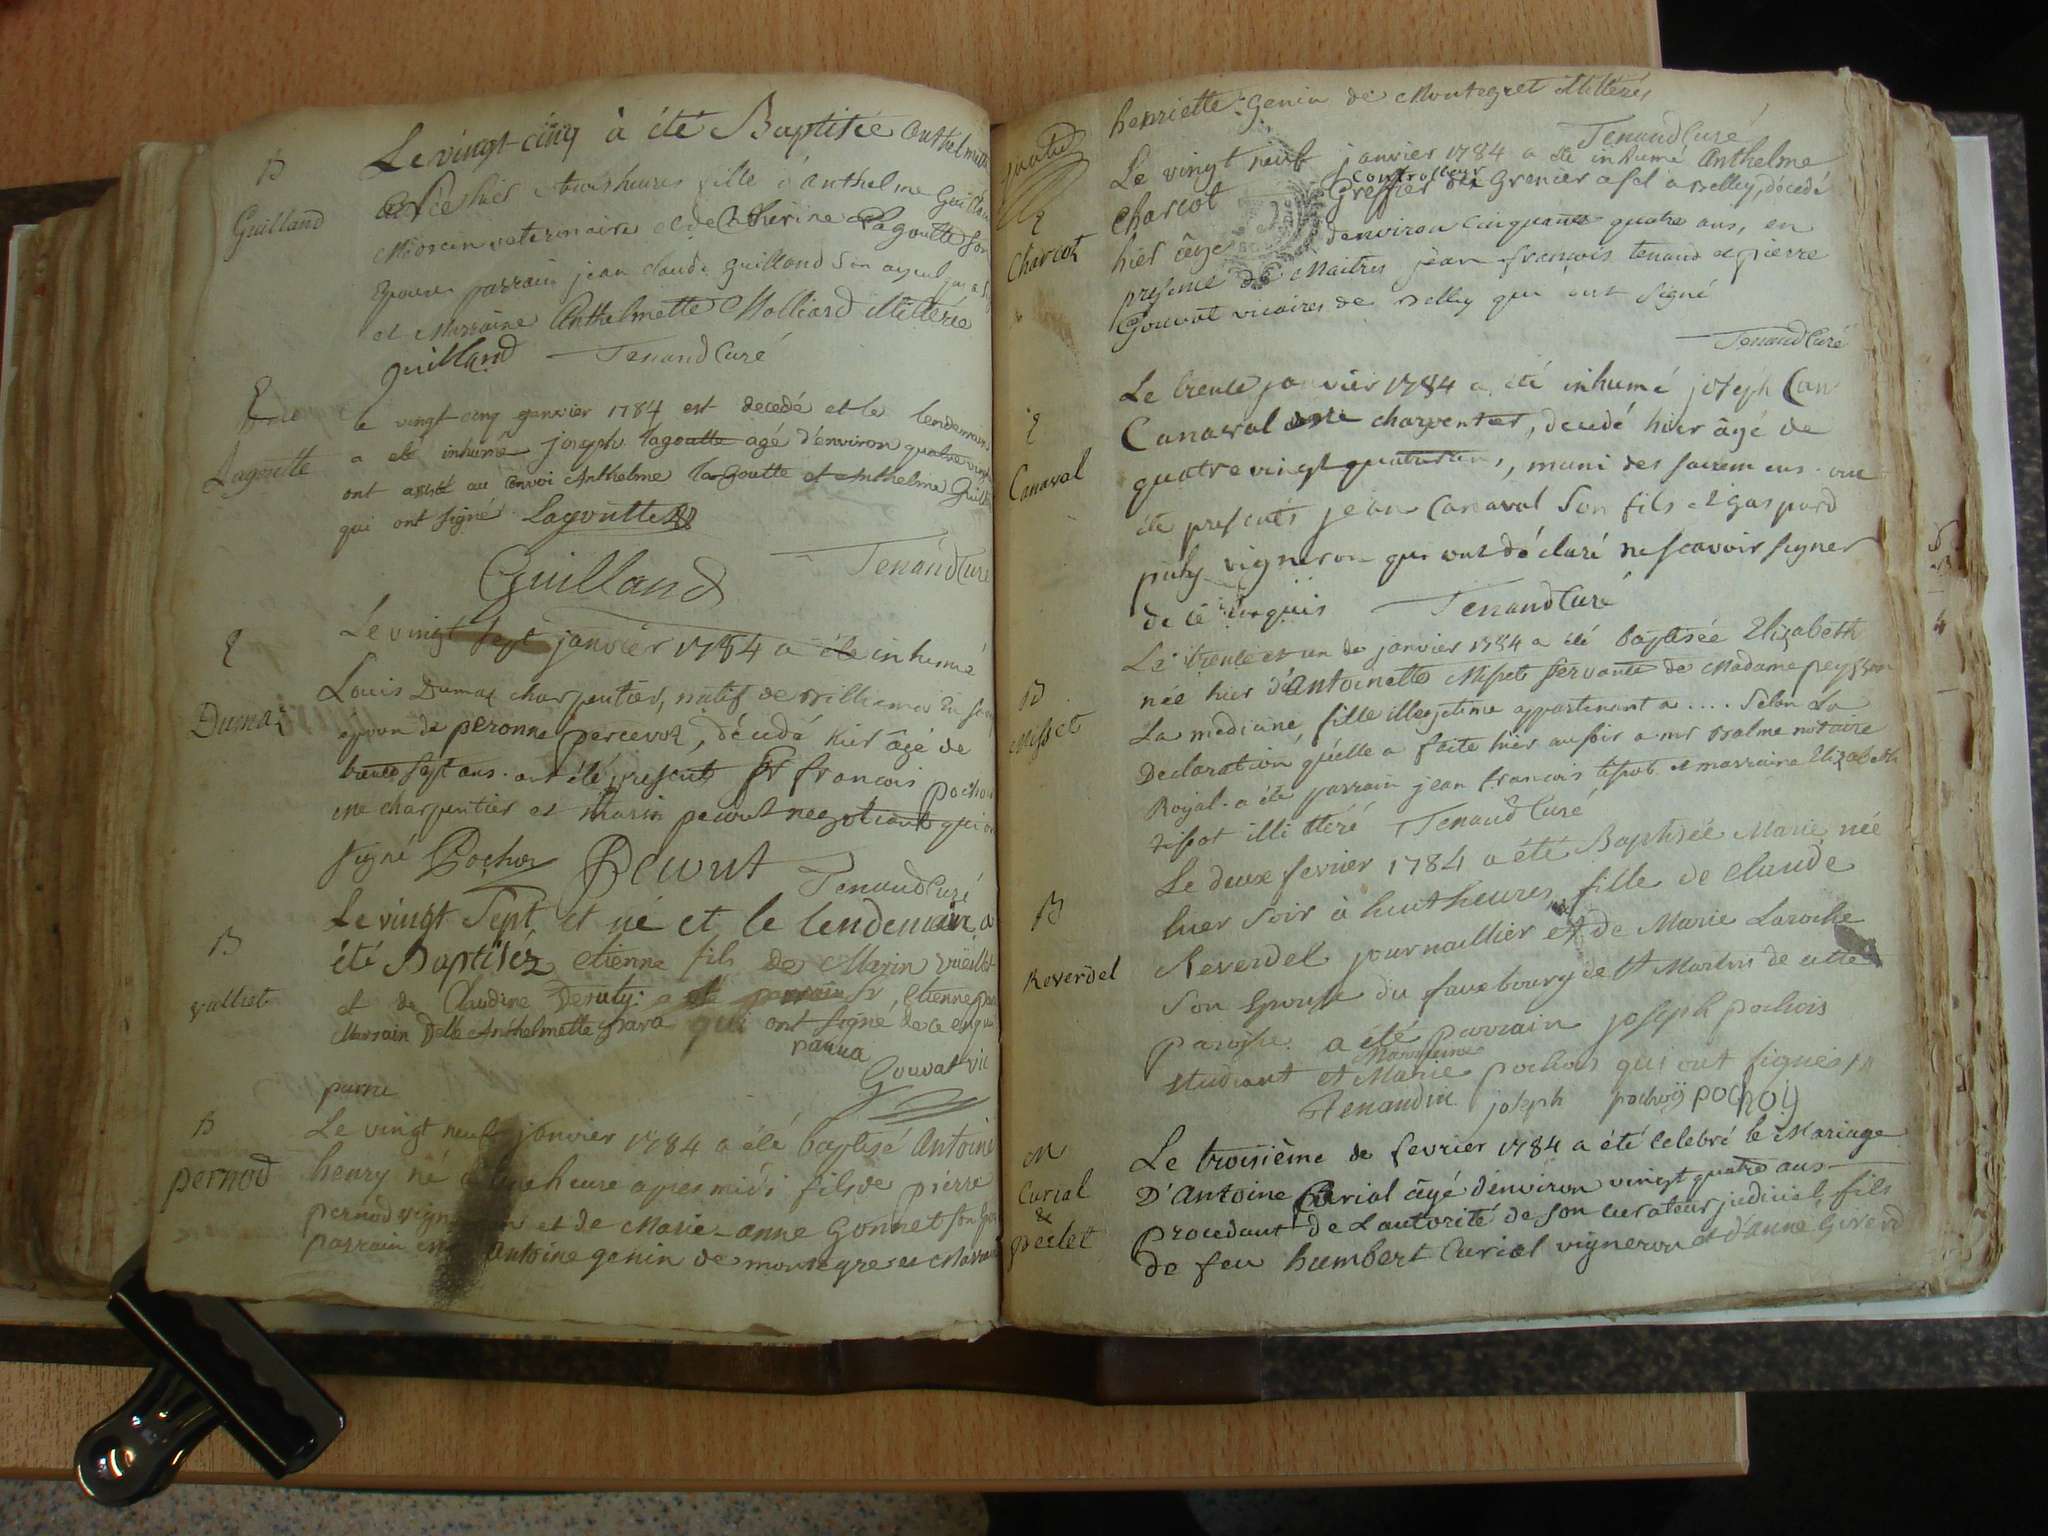 B
Le vingt-cinq à été Baptisée Anthelmette
née hier a trois heures fille d'Anthelme Guilland
Guilland
Medecin veterinaire et de Catherine Lagoutte son
Epouse parrain jean claude guilland son ayeul
et Marraine Anthelmette Molliard illitérée
guilland Tenand Curé
Lagoutte
le vingt cinq genvier 1784 est decedé et le lendemain
a eté inhumé joseph lagoutte agé d'environ quatre vingt
ont assisté au convoi Anthelme lagoutte et Anthelme Guilland
qui ont signé Lagoutte
Guilland Tenand Curé
Dumas
Le vingt sept janvier 1784 a été inhumé
Louis Dumas charpentier, natif de
epoux de peronne percevoz, décédé hier âgé de
trente sept ans. ont été presents Sr francois pochoy
me charpentier et Marin pecout negotiant qui ont
signé Pochoy Pecout
Tenand Curé
B
valliet
Le vingt Sept et né et le lendemain a
été Baptisez etienne fils de Marin
et de Claudine a eté parrain Sr Etienne
Marrain Delle Anthelmette parra qui ont signé de ce enquis
parra
Gouvat vic
parra
B
pernod
Le vingt neuf janvier 1784 a été baptisé Antoine
henry né à une heure apres midi fils de pierre
pernod vigneron et de Marie-anne Gonnet son
parrain Antoine genin de montegret et Marraine
henriette genin de Montegret illiterés
Tenand Curé
Charcot
Le vingt neuf janvier 1784 a été inhumé Anthelme
controlleur
Charcot Greffier du Grenier a sel a Belley, décédé
hier âgé denviron cinquante quatre ans, en
presence de Maitres jean-françois tenand et pierre
Gouvat vicaires de Belley qui ont signé
Tenand Curé
Canaval
Le trente janvier 1784 a été inhumé joseph Can
Canaval me charpentier, decedé hier âgé de
quatre vingt quatre ans, muni des sacremens. ont
été presents jean Canaval son fils et gaspard
puty vigneron qui ont déclaré ne scavoir signer
de ce enquis Tenand Curé
B
Misset
Le trente et un de janvier 1784 a été baptisée Elizabeth
née hier d'Antoinette Misset servante de Madame peysson
La medicine, fille illegetime appartenant a .... Selon La
Declaration qu'elle a faite hier au soir a mr Balme notaire
Royal. a été parrain jean francois tissot et marraine Elizabeth
tissot illittéré Tenand Curé
B
Reverdel
Le deux fevrier 1784 a été Baptisée Marie née
hier soir à huit heures, fille de Claude
Reverdel journaillier et de Marie Laroche
son Epouse du fauxbourg de St Martin de cette
paroisse. a été parrain joseph pochois
Marraine
etudiant et Marie pochois qui ont signés
Tenand vic joseph pochoÿ pochoij
M
Curial
&
peclet
Le troisième de fevrier 1784 a été celebré le Mariage
D'Antoine Curial âgé d'environ vingt quatre ans
procedant de L'autorité de son curateur judiciel, fils
de feu humbert Curial vigneron et d'anne Girerd